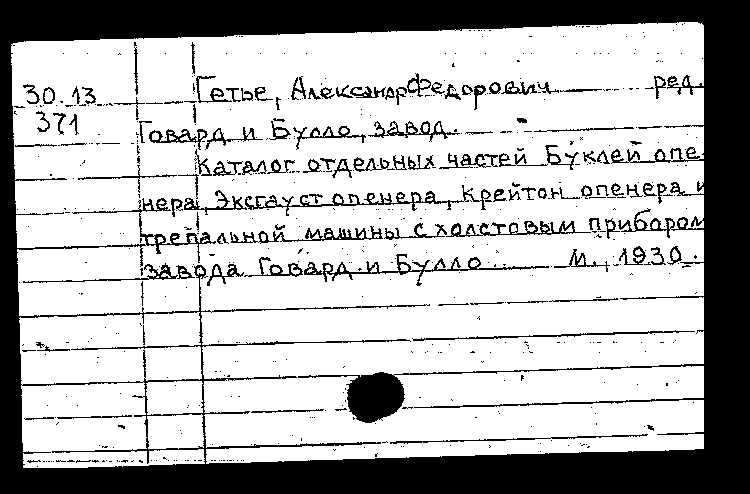 30.13 Гетье, Александр Федорович ред.
371 Говард и Булло, завод.
Каталог отдельных частей Буклей опе-
нера, Эксгауст опенера, Крейтон опенера и
трепальной машины с холстовым прибором
завода Говард и Булло... М., 1930.